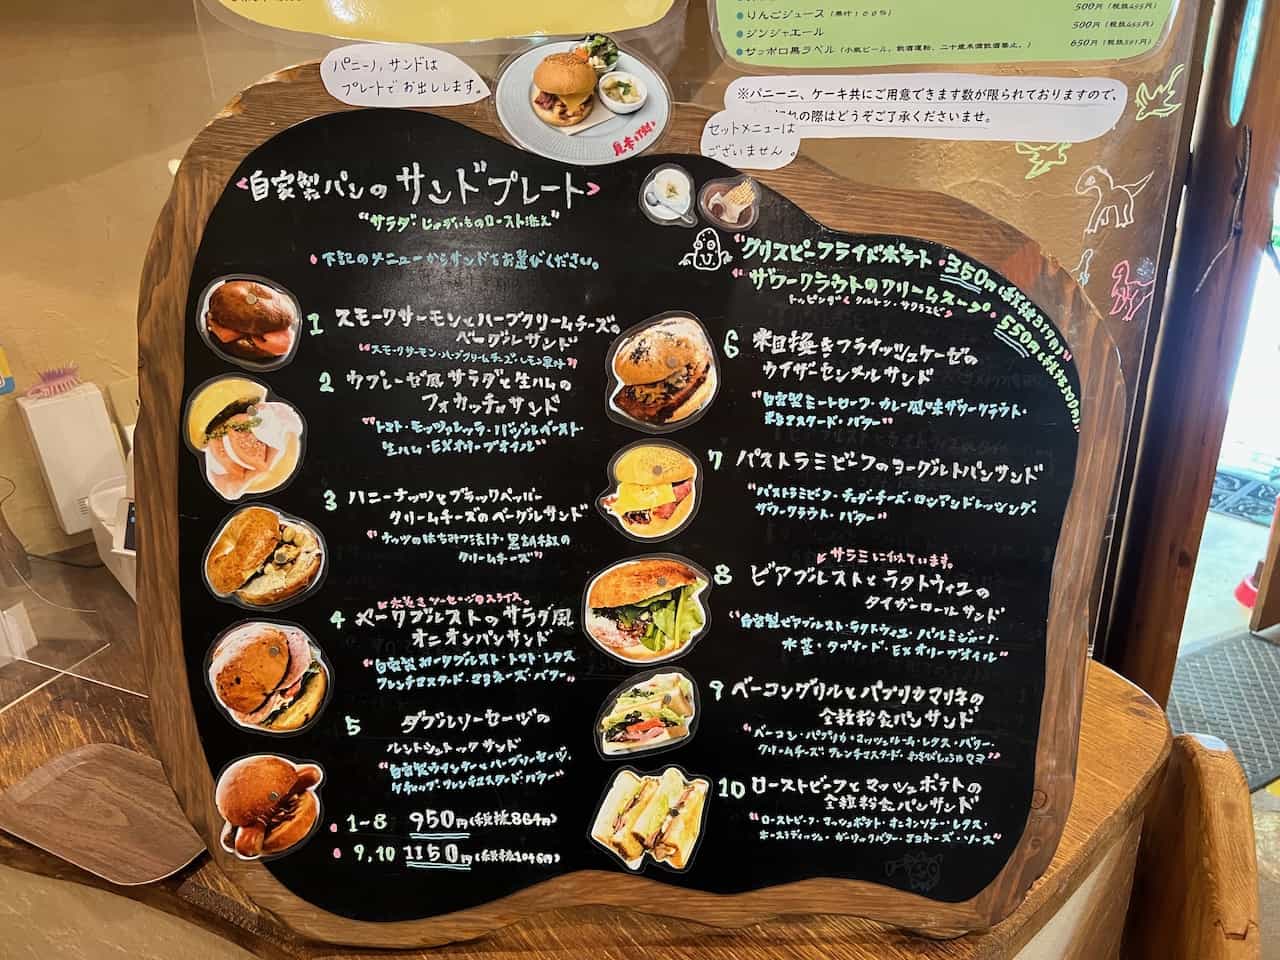 りんごジュース（果汁100%）
500円（税抜455円）
ジンジャエール
500円（税抜455円）
サッポロ黒ラベル（小瓶ビール。飲酒運転、二十歳未満飲酒禁止。）
650円（税抜591円）
パニーノ、サンドは
プレートでお出しします。
※パニーニ、ケーキ共にご用意できます数が限られておりますので、
の際はどうぞご了承くださいませ。
セットメニューは
ございません。
<自家製パンのサンドプレート>
"サラダ・じゃがいものロースト添え"
下記のメニューからサンドをお選びください。
"クリスピーフライドポテト・350円(税抜319円)"
"ザワークラウトのクリームスープ・550円(税抜500円)"
トッピング クルトン・サクラエビ
1 スモークサーモンとハーブクリームチーズの
ベーグルサンド
"スモークサーモン・ハーブクリームチーズ・レモン果汁"
2 カプレーゼ風サラダと生ハムの
フォカッチャサンド
"トマト・モッツァレッラ・バジルペースト・
生ハム・EXオリーブオイル"
3 ハニーナッツとブラックペッパー
クリームチーズのベーグルサンド
"ナッツのはちみつ漬け・黒胡椒の
クリームチーズ"
太巻きソーセージのスライス。
4 ヤークブルストのサラダ風
オニオンパンサンド
"自家製ヤークブルスト・トマト・レタス
フレンチマスタード・マヨネーズ・バター"
5 ダブルソーセージの
ルントシュトックサンド
"自家製ウインナーとハーブソーセージ、
ケチャップ・フレンチマスタード・バター"
1~8 950円(税抜864円)
9,10 1150円(税抜1046円)
6 粗挽きフライッシュケーゼの
カイザーセンメルサンド
"自家製ミートローフ・カレー風味ザワークラウト・
粒マスタード・バター"
7 パストラミビーフのヨーグルトパンサンド
"パストラミビーフ・チェダーチーズ・ロシアンドレッシング・
ザワークラウト・バター"
サラミに似ています。
8 ビアブルストとラタトゥイユの
タイガーロールサンド
"自家製ビアブルスト・ラタトゥイユ・パルミジャーノ・
水菜・タプナード・EXオリーブオイル"
9 ベーコングリルとパプリカマリネの
全粒粉食パンサンド
"ベーコン・パプリカ・マッシュルーム・レタス・バター・
クリームチーズ・フレンチマスタード・わさびしょうゆマヨ"
10 ローストビーフとマッシュポテトの
全粒粉食パンサンド
"ローストビーフ・マッシュポテト・オニオンソテー・レタス・
ホースラディッシュ・ガーリックバター・マヨネーズ・ソース"